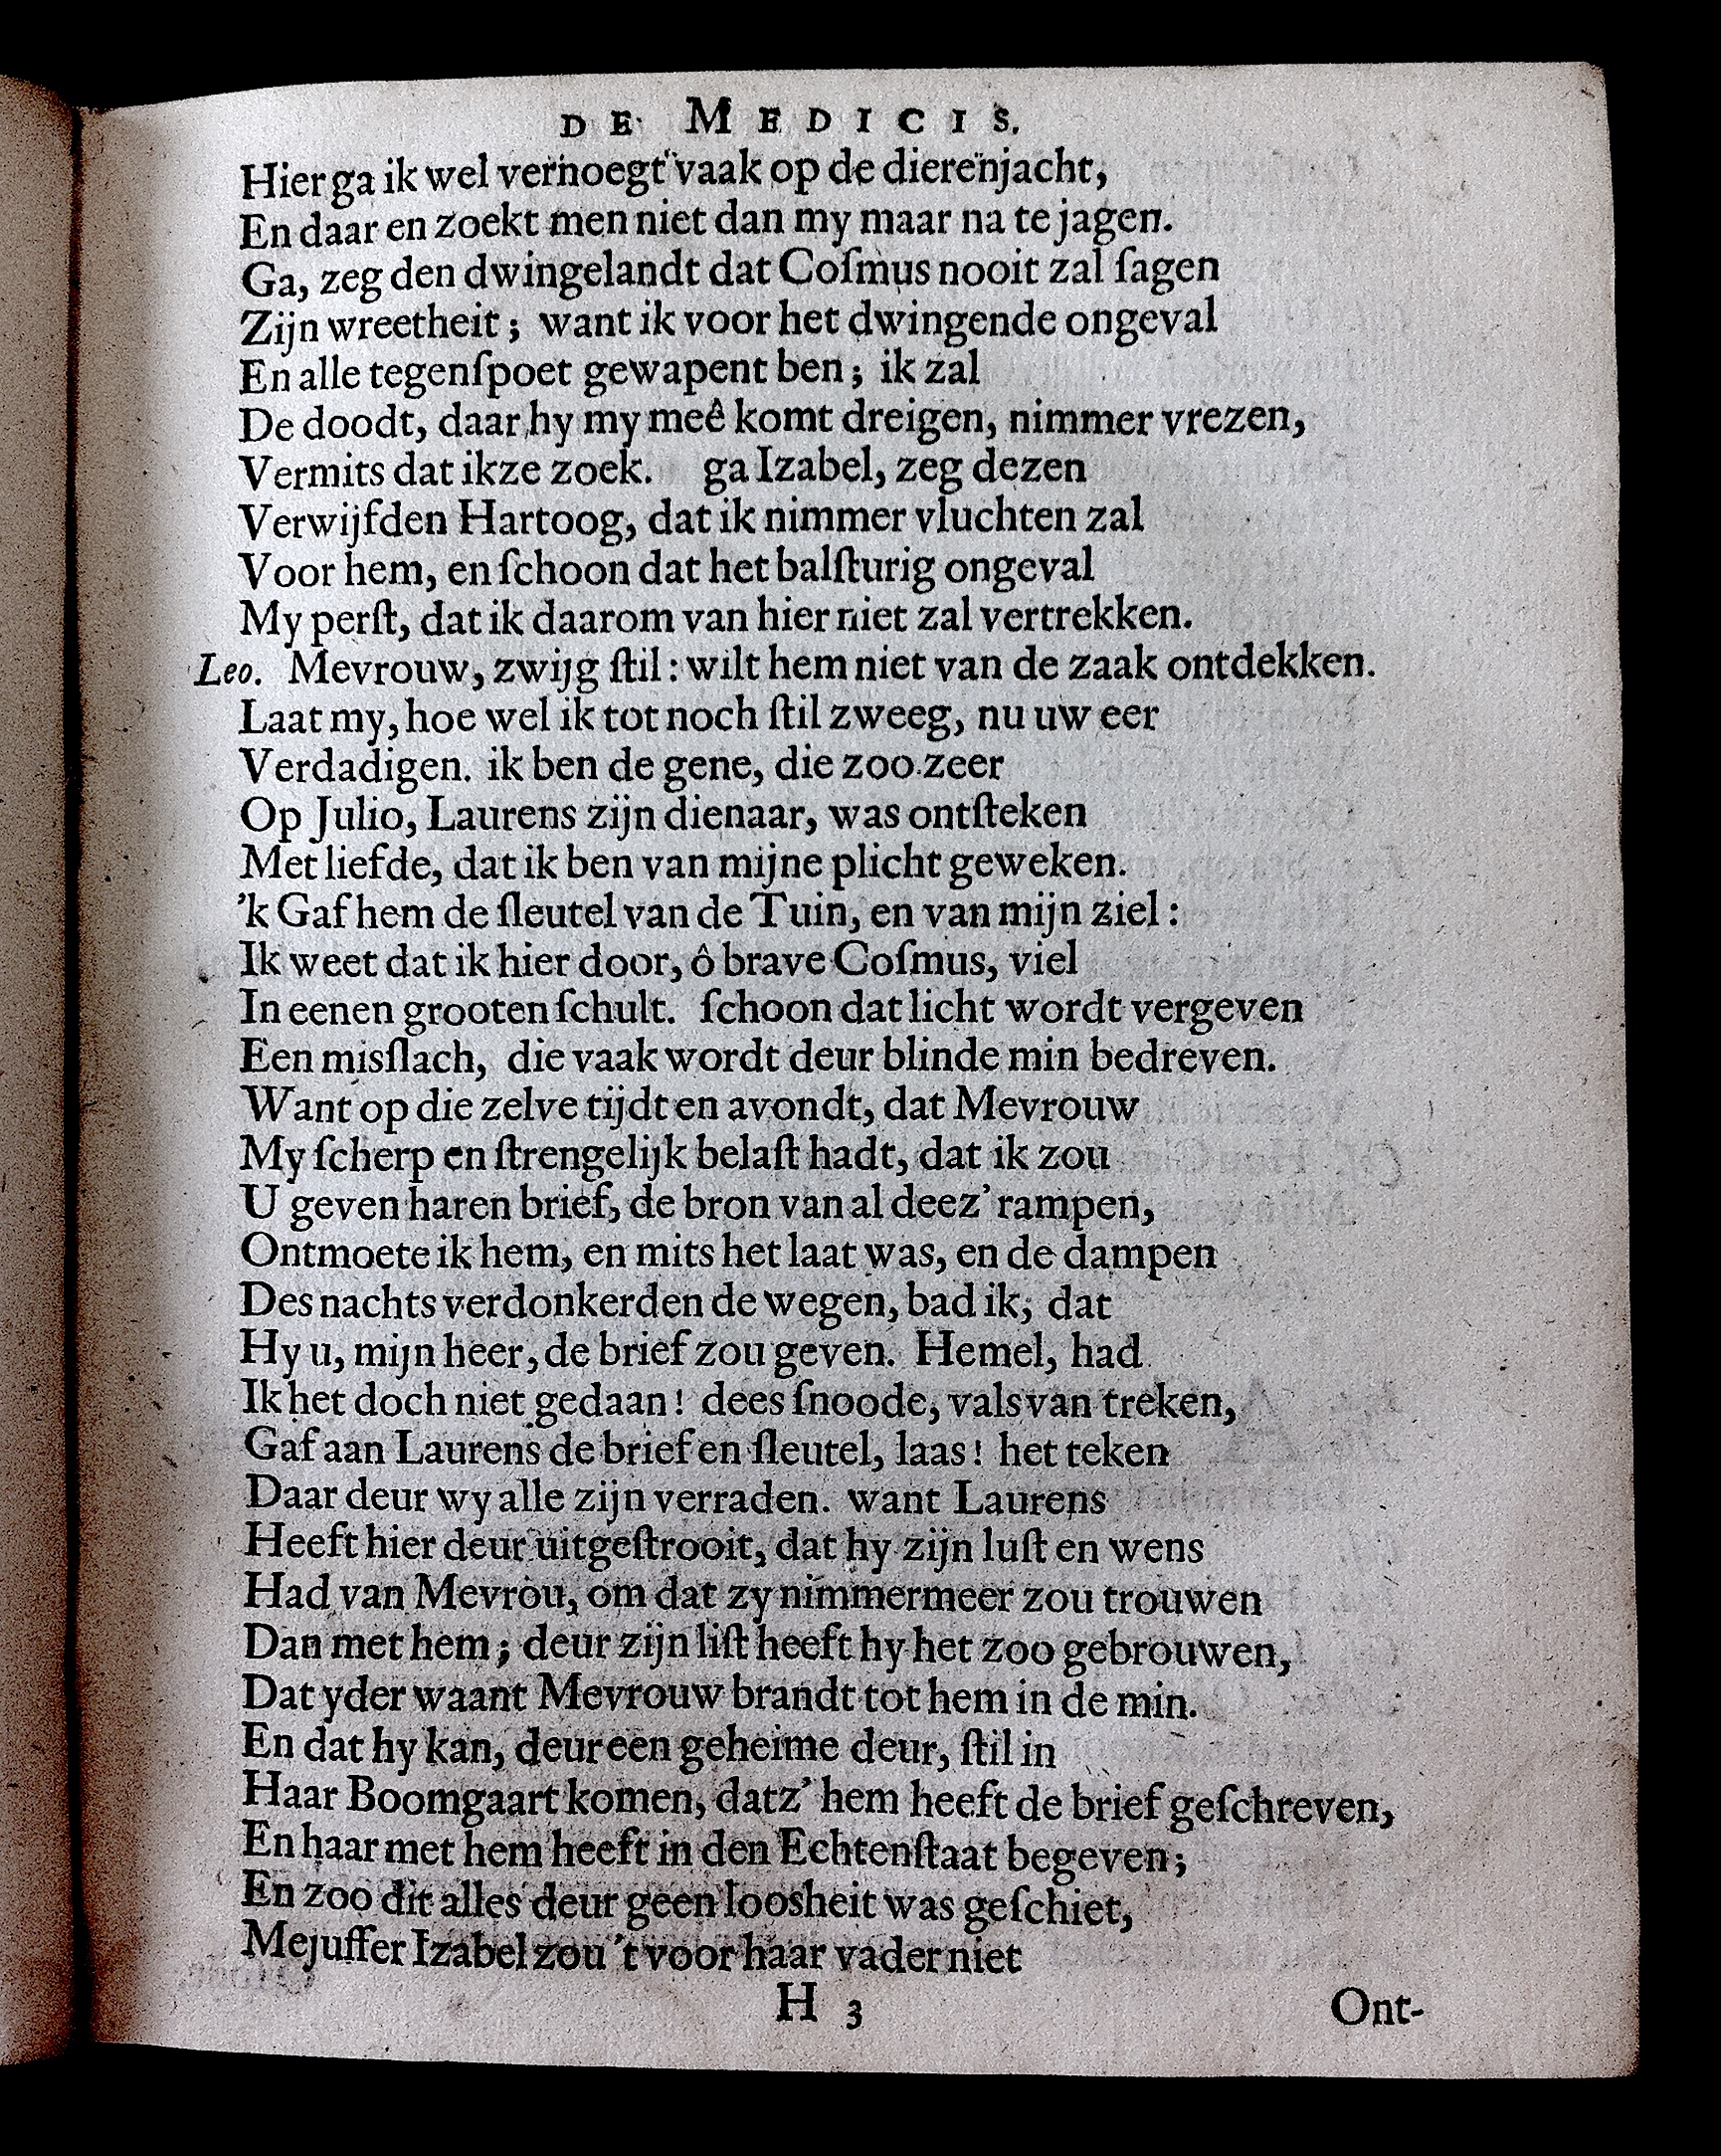 DE MEDICIS.
Hier ga ik wel vernoegt vaak op de dierenjacht,
En daar en zoekt men niet dan my maar na te jagen.
Ga, zeg den dwingelandt dat Coſmus nooit zal ſagen
Zijn wreetheit; want ik voor het dwingende ongeval
En alle tegenſpoet gewapent ben; ik zal
De doodt, daar hy my meê komt dreigen, nimmer vrezen,
Vermits dat ikze zoek. ga Izabel, zeg dezen
Verwijfden Hartoog, dat ik nimmer vluchten zal
Voor hem, en ſchoon dat het balſturig ongeval
My perſt, dat ik daarom van hier niet zal vertrekken.
Leo. Mevrouw, zwijg ſtil: wilt hem niet van de zaak ontdekken.
Laat my, hoe wel ik tot noch ſtil zweeg, nu uw eer
Verdadigen. ik ben de gene, die zoo zeer
Op Julio, Laurens zijn dienaar, was ontſteken
Met liefde, dat ik ben van mijne plicht geweken.
'k Gaf hem de ſleutel van de Tuin, en van mijn ziel:
Ik weet dat ik hier door, ô brave Coſmus, viel
In eenen grooten ſchult. ſchoon dat licht wordt vergeven
Een misſlach, die vaak wordt deur blinde min bedreven.
Want op die zelve tijdt en avondt, dat Mevrouw
My ſcherp en ſtrengelijk belaſt hadt, dat ik zou
U geven haren brief, de bron van al deez' rampen,
Ontmoete ik hem, en mits het laat was, en de dampen
Des nachts verdonkerden de wegen, bad ik, dat
Hy u, mijn heer, de brief zou geven. Hemel, had
Ik het doch niet gedaan! dees ſnoode, vals van treken,
Gaf aan Laurens de brief en ſleutel, laas! het teken
Daar deur wy alle zijn verraden. want Laurens
Heeft hier deur uitgeſtrooit, dat hy zijn luſt en wens
Had van Mevrou, om dat zy nimmermeer zou trouwen
Dan met hem; deur zijn liſt heeft hy het zoo gebrouwen,
Dat yder waant Mevrouw brandt tot hem in de min.
En dat hy kan, deur een geheime deur, ſtil in
Haar Boomgaart komen, datz' hem heeft de brief geſchreven,
En haar met hem heeft in den Echtenſtaat begeven;
En zoo dit alles deur geen loosheit was geſchiet,
Mejuffer Izabel zou 't voor haar vader niet
H 3
Ont-